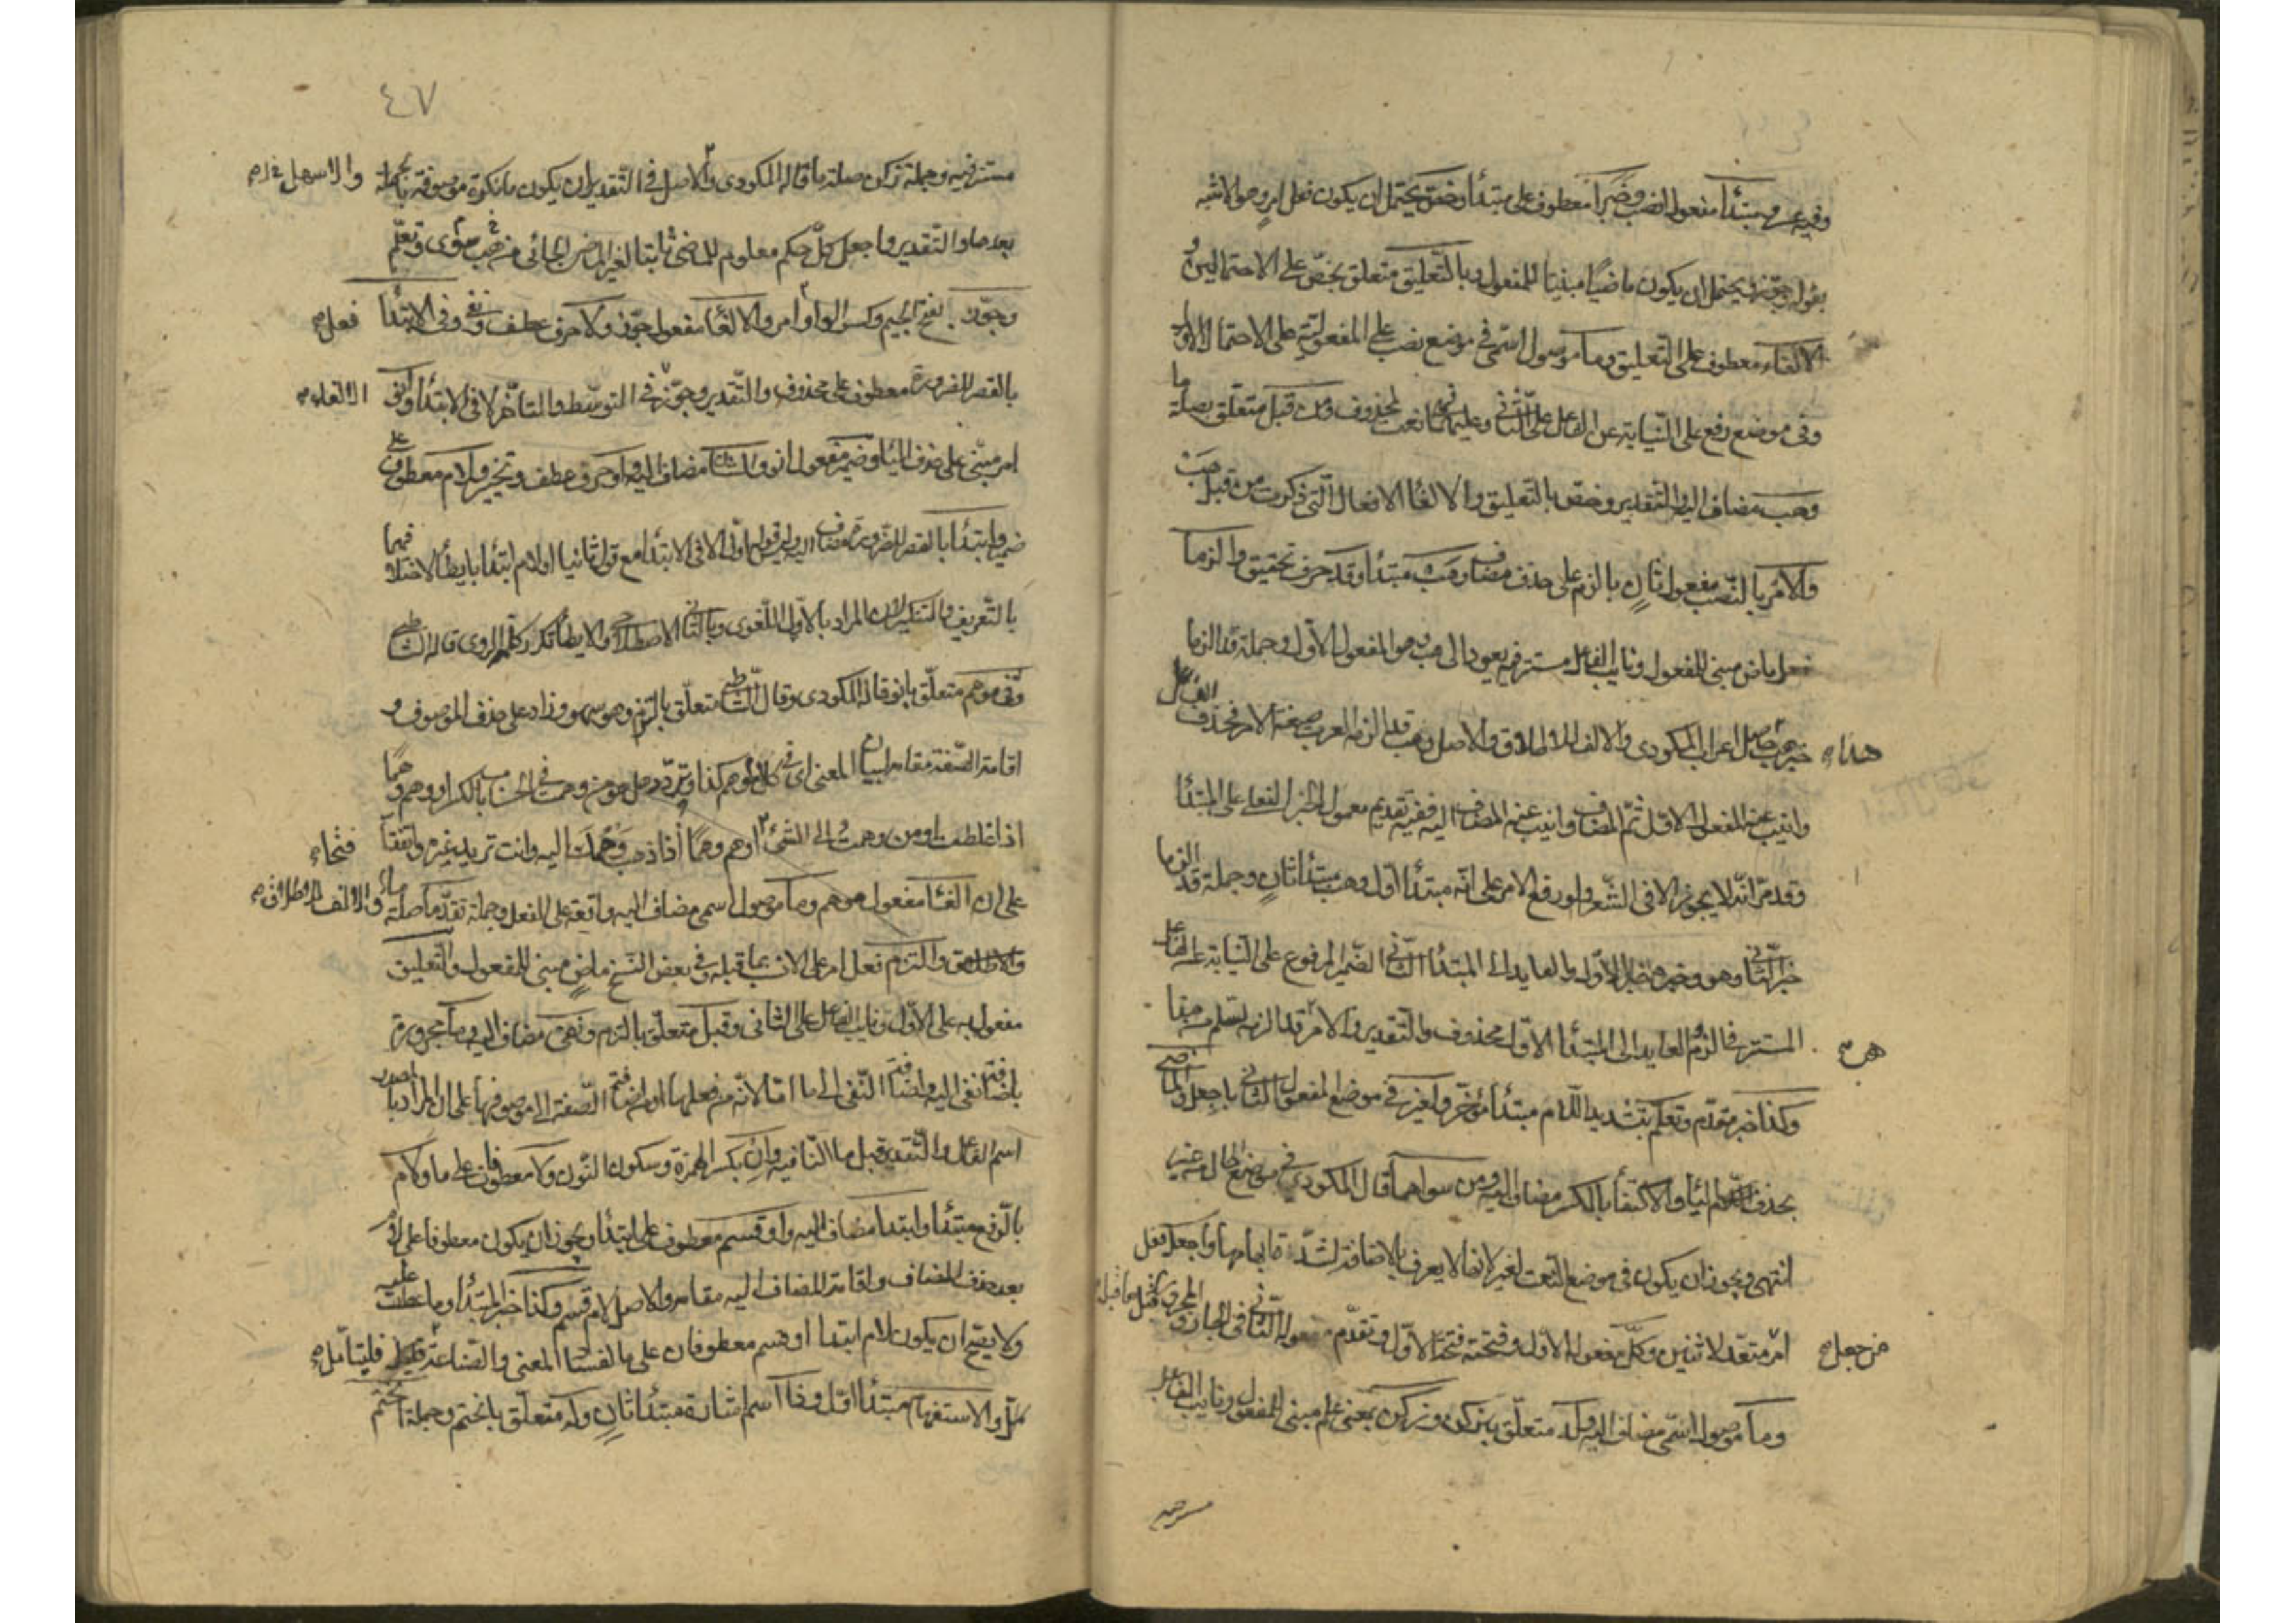 وفيه عن وهب مبتدأ مفعول انصب وخبرا معطوف على مبتدأ وخص يحتمل ان يكون فعل امر وهو الاشبه
بقوله وجوز ويحتمل ان يكون ماضيا مبنيا للمفعول وبالتعليق متعلق بخص على الاحتمالين و
الالغاء معطوف على التعليق وما موصول اسمى في موضع نصب على المفعولية على الاحتمال الاول
وفى موضع رفع على النيابة عن الفاعل على الثانى وعليهما نعت لمحذوف ومن قبل متعلق بصلة ما
وهب مضاف اليه والتقدير وخص بالتعليق والالغا الافعال التى ذكرت من قبل هب
والامر بالنصب مفعول ثان بالزم على حذف مضاف وهب مبتدأ وقد حرف تحقيق والزما
فعل ماض مبنى للمفعول ونايب الفاعل مستتر فيه يعود الى هب وهو المفعول الاول وجملة قد الزما
خبر هب هذا حاصل اعراب المكودى والالف للاطلاق والاصل وهب قد الزمه العرب صيغة الامر فحذف الفاعل
وانيب عنه المفعول الاول ثم المضاف وانيب عنه المضاف اليه ففيه تقديم معمول الخبر الفعلى على المبتدأ
وتقدم انه لا يجوز الا فى الشعر ولو رفع الامر على انه مبتدأ اول وهب مبتدأ ثان وجملة قد الزما
خبر الثانى وهو وخبره خبر الاول والعايد الى المبتدأ الثانى الضمير المرفوع على النيابة عن الفاعل
المستتر فى الزم والعايد الى المبتدأ الاول محذوف والتقدير والامر هب قد الزمه لسلم من هذا
وكذا خبر مقدم وتعلم بتشديد اللام مبتدأ مؤخر ولغير فى موضع المفعول الثانى باجعل والماضى
بحذف الياء والاكتفأ بالكسر مضاف اليه ومن سواهما قال المكودي في موضع الحال من غير
انتهى ويجوز ان يكون فى موضع النعت لغير لانها لا يعرف بالاضافة لشدة ابهامها واجعل فعل
امر من جعل متعد لاثنين وكل مفعوله الاول وفتحته فتحة الاول وتقدم مفعوله الثانى فى الجار والمجرور قبله
وما موصول اسمى مضاف اليه وله متعلق بزكن وزكن بمعنى علم مبنى للمفعول ونايب الفاعل
مستتر
٤٧
مستتر فيه وجملة زكن صلة ما قاله المكودى والاسهل والاصل فى التقدير ان يكون ما نكرة موصوفة بالجملة
بعدها والتقدير واجعل كل حكم معلوم للماضى ثابتا لغير الماضى الجائى من هب سوى وتعلم
وجوز بفتح الجيم وكسر الواو امر والالغا مفعول جوز ولا حرف عطف ونفى وفى الابتدا
بالقصر للضرورة معطوف على محذوف والتقدير وجوز الالغاء فى التوسط والتأخر لا فى الابتدأ وانو فعل
امر مبنى على حذف الياء وضمير مفعول انو والشان مضاف اليه واو حرف عطف وتخيير ولام معطوف على
ضمير وابتدا بالقصر للضرورة مضاف اليه وليس قوله اولا لا فى الابتدا مع قوله ثانيا او لام ابتدا بايطا لاختلافهما
بالتعريف والتنكير لان المراد بالاول اللغوى وبالثانى الاصطلاحى والايطا تكرر كلمة الروى قاله الشاطبى
وفى موهم متعلق بانو قاله المكودى وقال الشاطبى متعلق بالتزم وهو سهو وزاد على حذف الموصوف و
اقامة الصفة مقامه لبيان المعنى اى فى كلام موهم كذا وتردد هل هو من وهمت فى الحساب بالكسر اوهم وهما
اذا غلطت او من وهمت فى الى الشئ اوهم وهما اذا ذهب وهمك اليه وانت تريد غيره واتفقا
على ان الغا مفعول موهم وما موصول اسمى مضاف اليه واقعة على الفعل وجملة تقدما صلة ما والالف للاطلاق
والتزم فعل امر على الانسب بما قبله وفى بعض النسخ ماض مبنى للمفعول والتعليق
مفعول به على الاول ونايب الفاعل على الثانى وقبل متعلق بالتزم ونفى مضاف اليه وما مجرورة
باضافة نفى اليه واضافة النفى الى ما اما لانه من فعلها او من اضافة الصفة الى موصوفها على ان المراد بالمصدر
اسم الفاعل والتقدير قبل ما النافيه وان بكسر الهمزة وسكون النون ولا معطوفان على ما ولام
بالرفع مبتدأ وابتدا مضاف اليه واو قسم معطوف على ابتدأ ويجوز ان يكون معطوفا على لام
بعد حذف المضاف واقامة المضاف اليه مقامه والاصل لام قسم وكذا خبر المبتدأ وما عطف عليه
ولا يصح ان يكون لام ابتدا او قسم معطوفان على ما لفساد المعنى والصناعة فليتأمل
والاستفهام مبتدأ اول وذا اسم اشارة مبتدأ ثان وله متعلق بانحتم وجملة انحتم